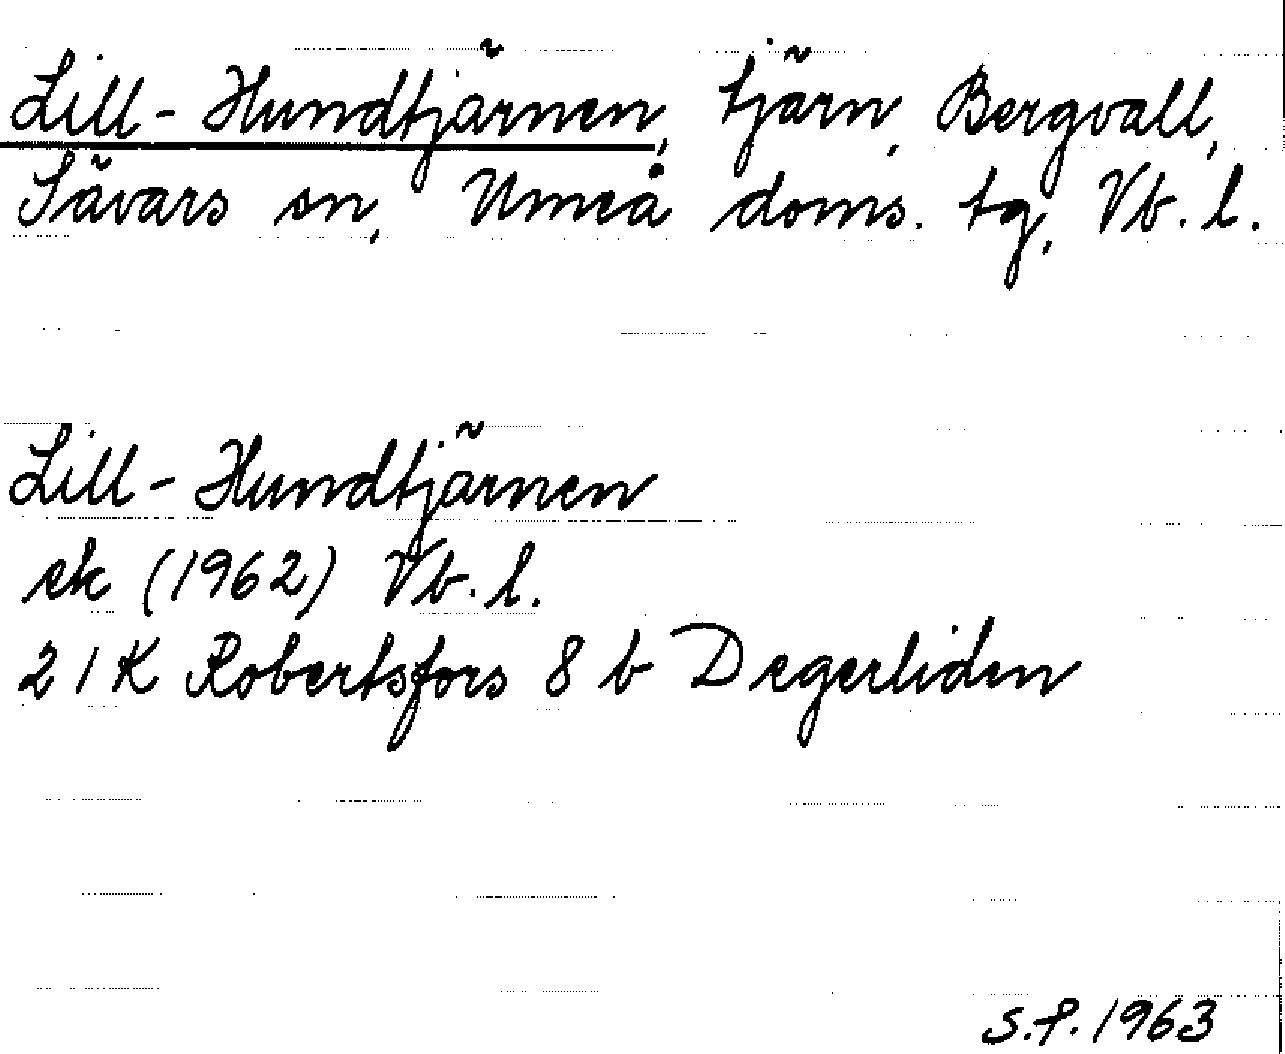 Lill-Hundtjärnen, tjärn, Bergvall,
Sävars sn, Umeå doms. tg, Vb. l.
Lill-Hundtjärnen
ek (1962) Vb. l.
21K Robertsfors 8 b Degerliden
S.P. 1963